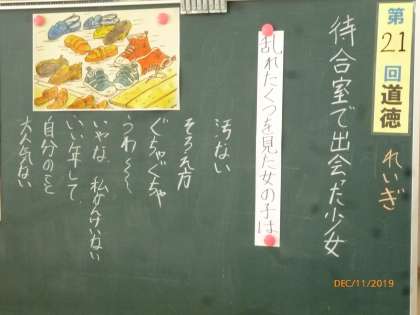 第21回道徳
れいぎ
待合室で出会った少女
乱れたくつを見た女の子は
汚ない
そろえ方
ぐちゃぐちゃ
うわ～～
いやな、私かんけいない
いい年して
自分のこと
大人気ない
DEC/11/2019